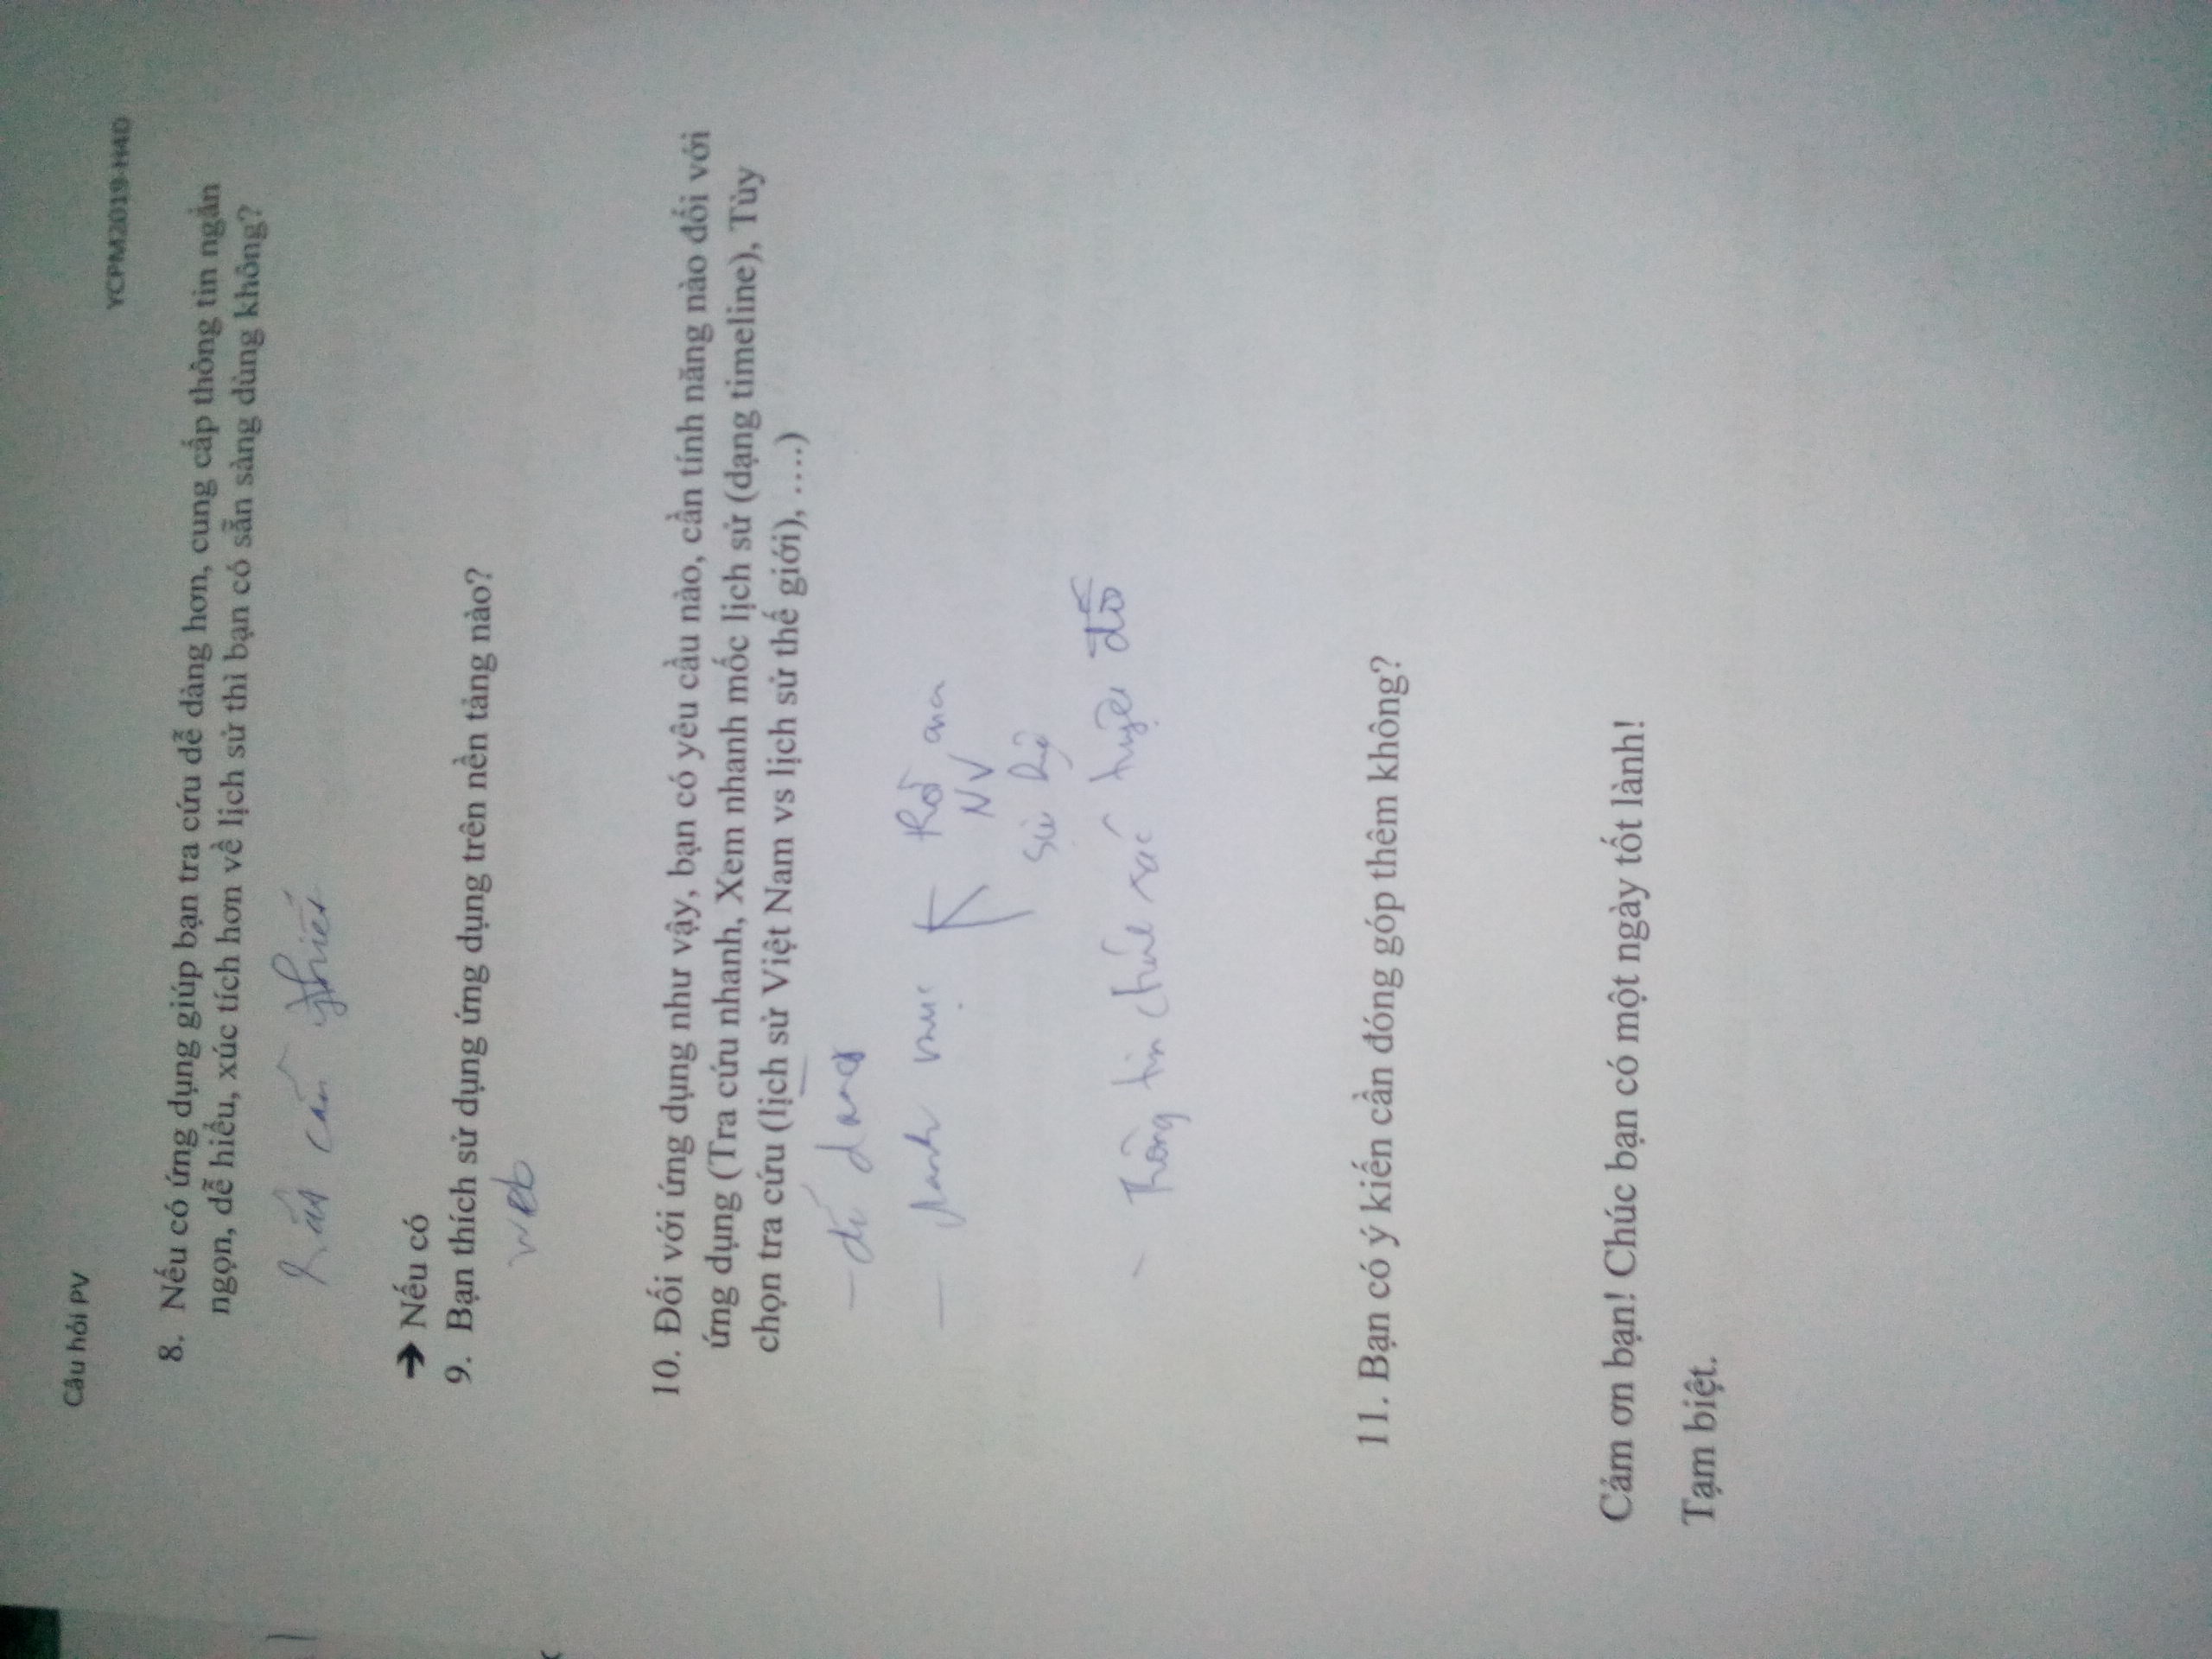 Câu hỏi PV
YCPM2019-H4D
8. Nếu có ứng dụng giúp bạn tra cứu dễ dàng hơn, cung cấp thông tin ngắn
ngọn, dễ hiểu, xúc tích hơn về lịch sử thì bạn có sẵn sàng dùng không?
Rất cần thiết
➔ Nếu có
9. Bạn thích sử dụng ứng dụng trên nền tảng nào?
web
10. Đối với ứng dụng như vậy, bạn có yêu cầu nào, cần tính năng nào đối với
ứng dụng (Tra cứu nhanh, Xem nhanh mốc lịch sử (dạng timeline), Tùy
chọn tra cứu (lịch sử Việt Nam vs lịch sử thế giới), ….)
- dễ dàng
- danh mục
NV
sự
- Thông tin chính xác tuyệt đối
11. Bạn có ý kiến cần đóng góp thêm không?
Cảm ơn bạn! Chúc bạn có một ngày tốt lành!
Tạm biệt.